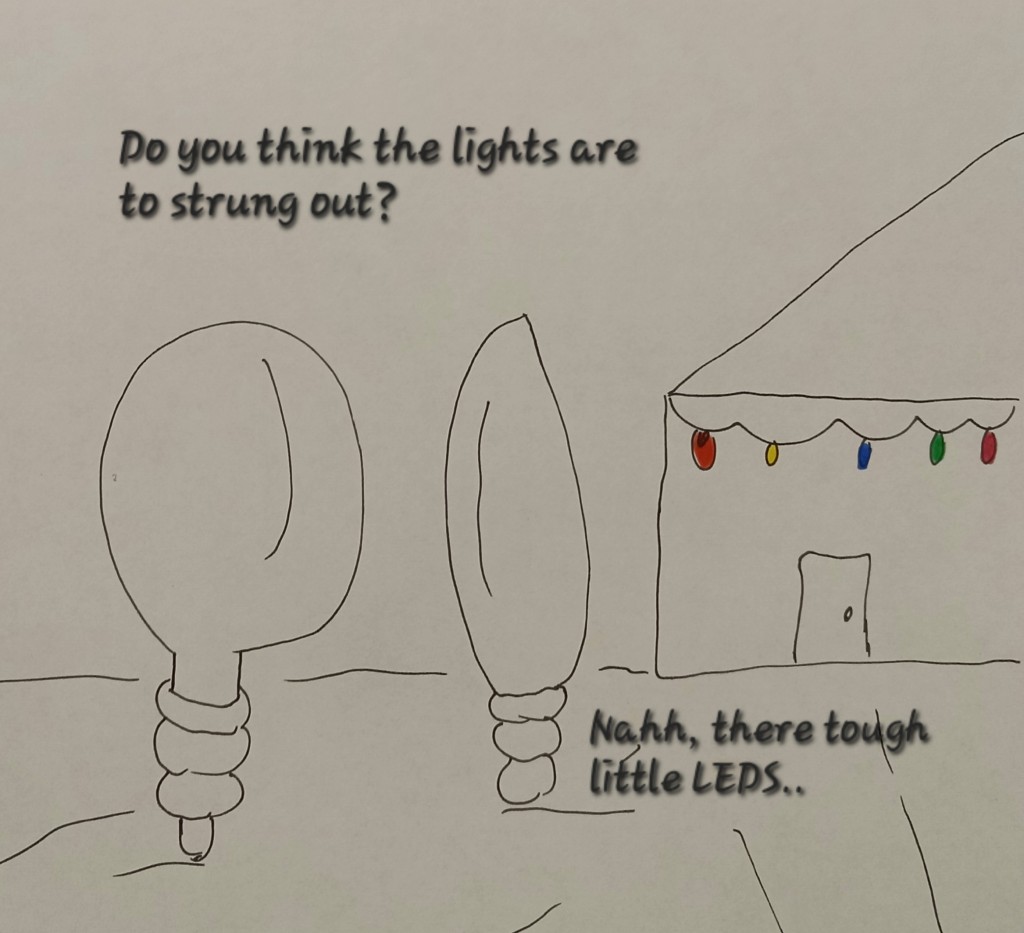 Do you think the lights are
to strung out?
Nahh, there tough
little LEDS..